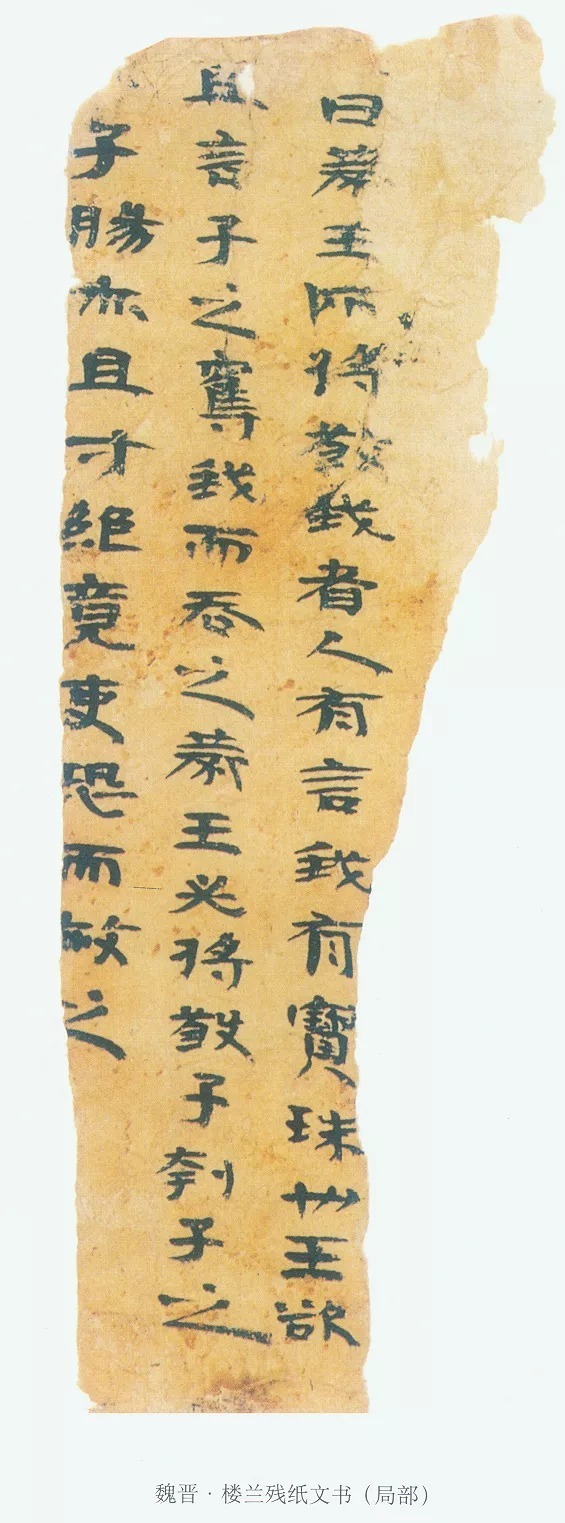 曰燕王所將殺我者人有言我有寶珠也王欲
且言子之奪我而吞之燕王必將殺子刳子之
子腸亦且寸絕竟吏恐而赦之
魏晋·楼兰残纸文书（局部）